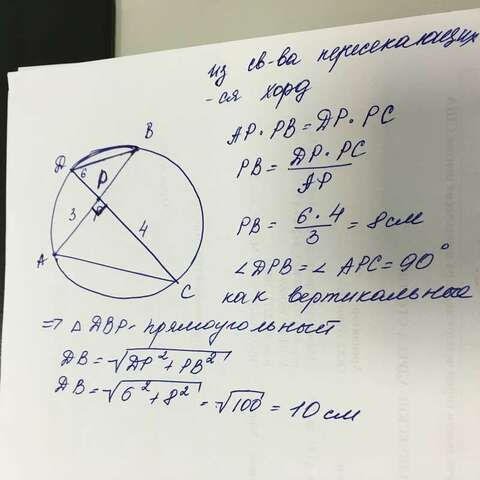 из св-ва пересекающих
-ся хорд
AP · PB = DP · PC
PB = DP · PC / AP
PB = 6 · 4 / 3 = 8 см
∠DPB = ∠APC = 90°
как вертикальные
=> △ DBP - прямоугольный
DB = √DP² + PB²
DB = √6² + 8² = √100 = 10 см
B
D
6
P
3
4
A
C